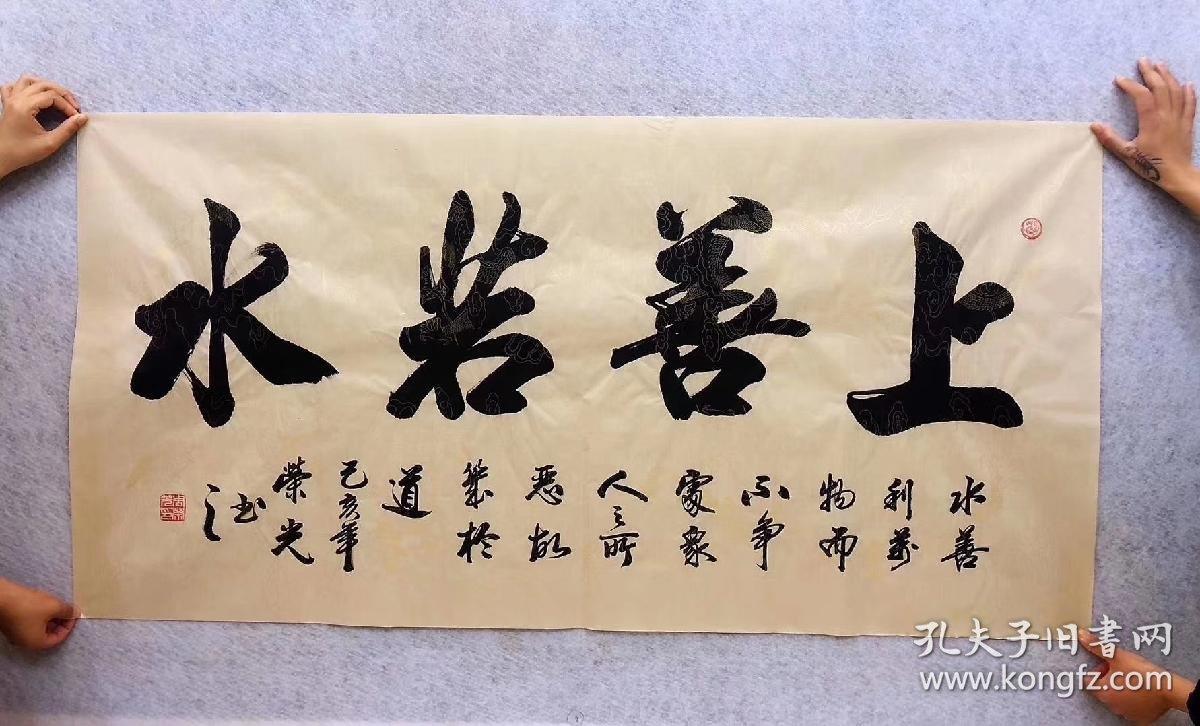 上善若水
水善
利萬
物而
不争
處衆
人之所
惡故
幾於
道
己亥年
榮光
书之
孔夫子旧書网
www.kongfz.com